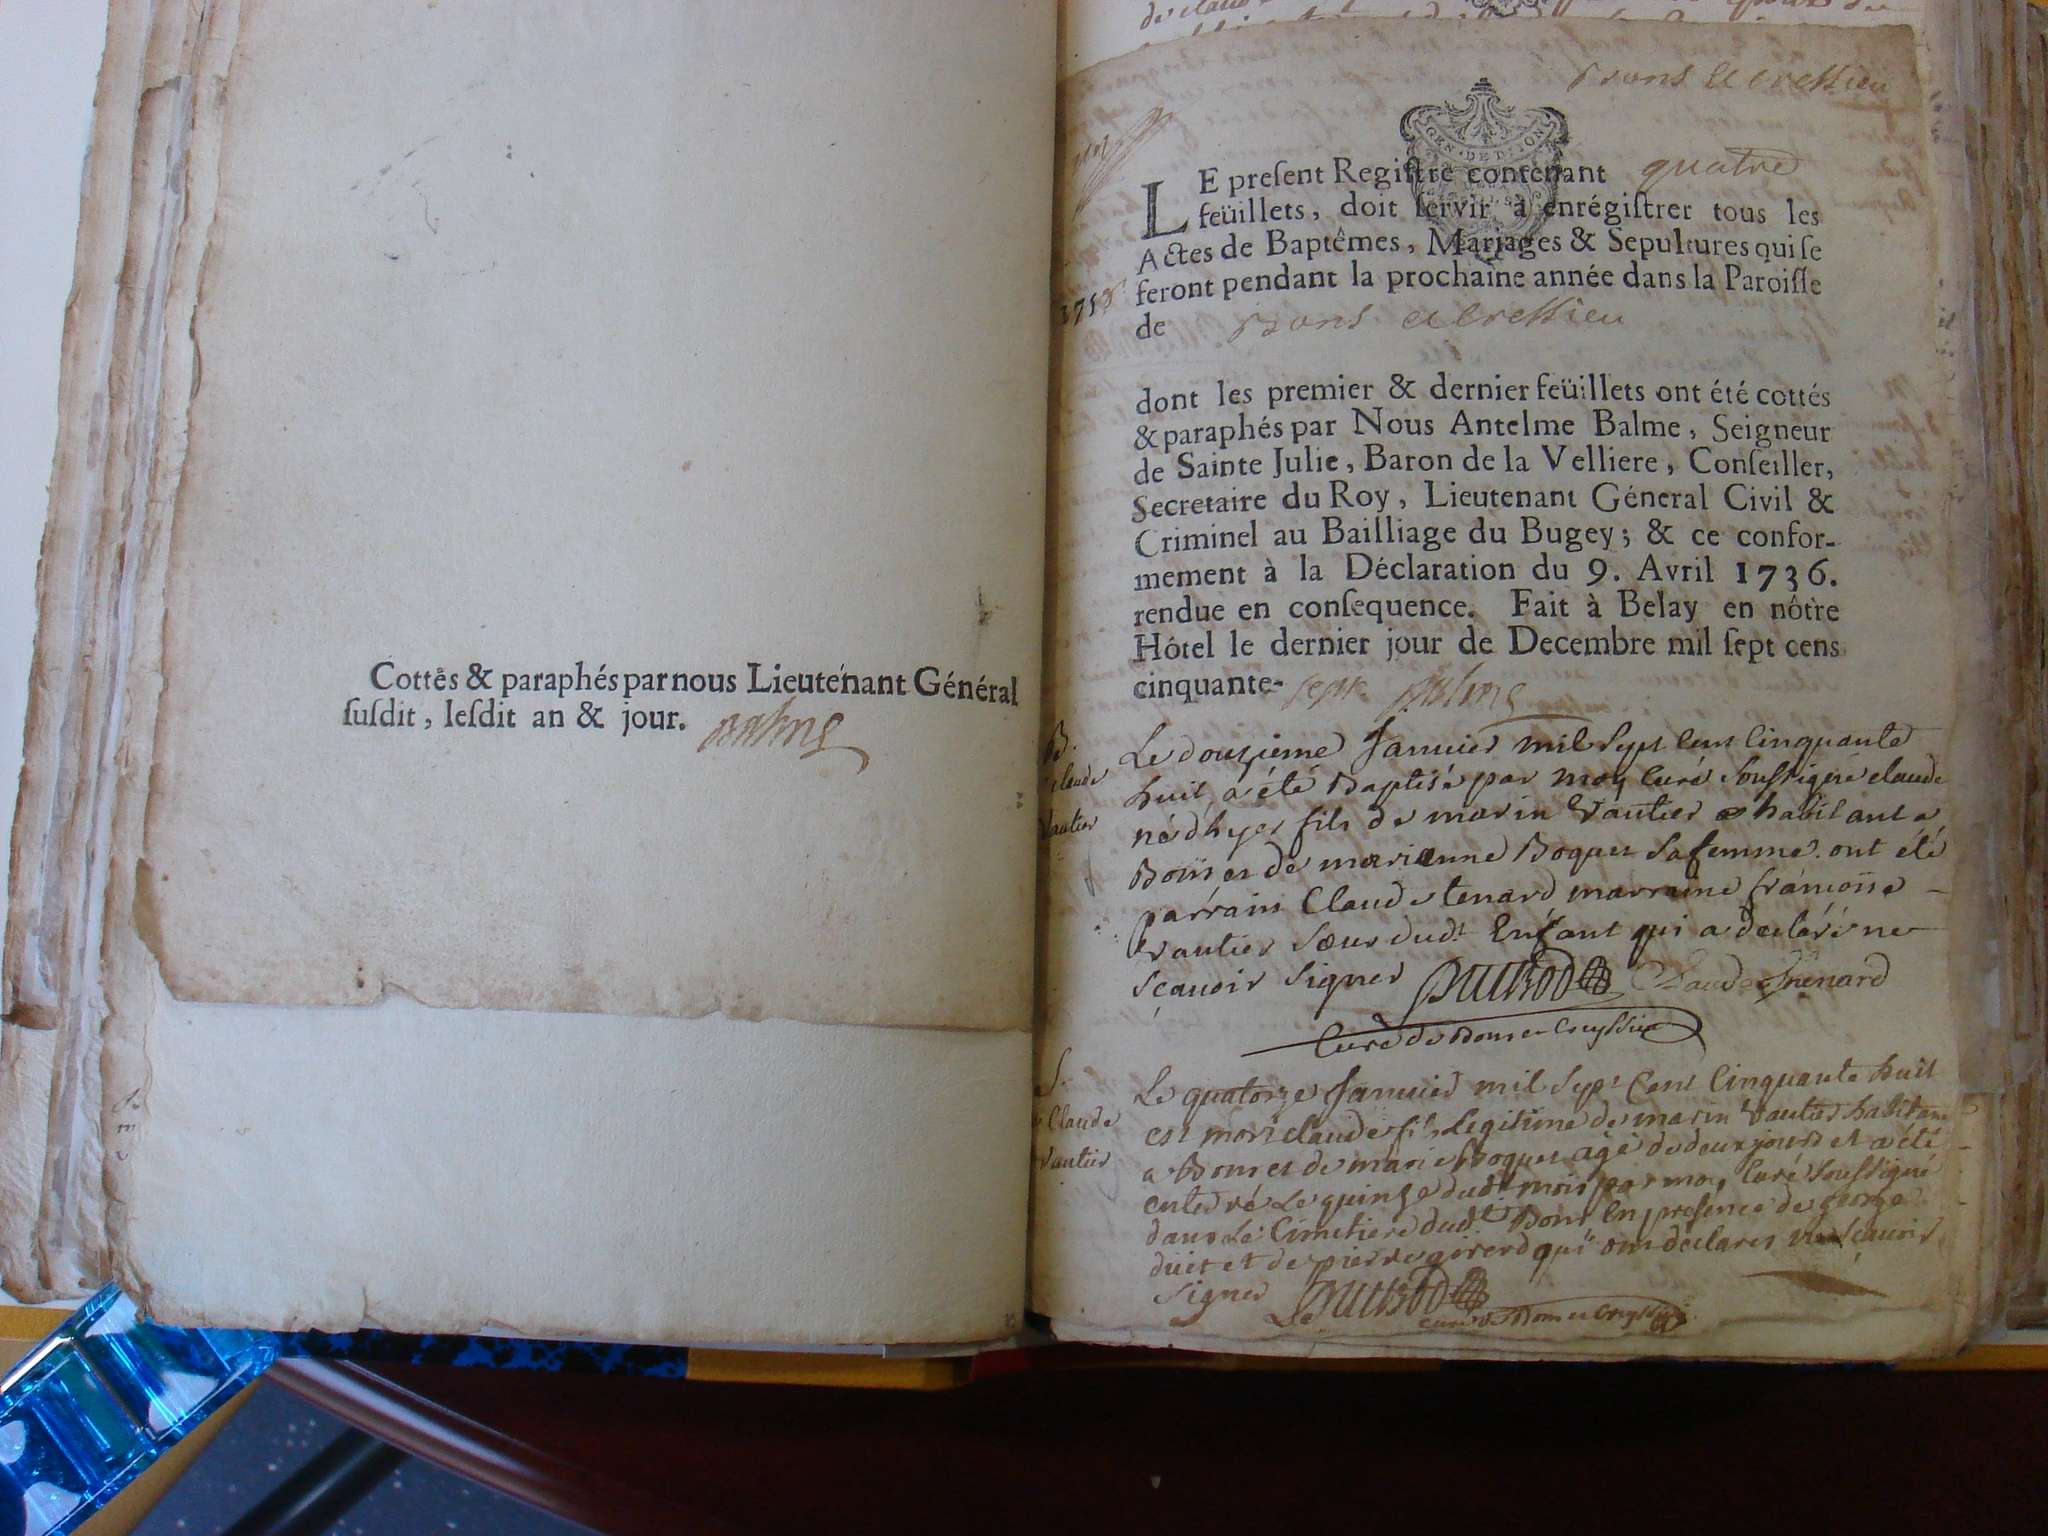 Cottés & paraphés par nous Lieutenant Général
ſuſdit, leſdit an & jour. Balme
Bons et cressieu
GEN. DE DIJON
LE preſent Regiſtre contenant quatre
feüillets, doit ſervir à enrégiſtrer tous les
Actes de Baptêmes, Mariages & Sepultures qui ſe
feront pendant la prochaine année dans la Paroiſſe
1758
de Bons et cressieu
dont les premier & dernier feüillets ont été cottés
& paraphés par Nous Antelme Balme, Seigneur
de Sainte Julie, Baron de la Velliere, Conſeiller,
Secretaire du Roy, Lieutenant Géneral Civil &
Criminel au Bailliage du Bugey; & ce confor-
mement à la Déclaration du 9. Avril 1736.
rendue en conſequence. Fait à Belay en nôtre
Hôtel le dernier jour de Decembre mil ſept cens
cinquante- sept Balme
B.
claude
vautier
Le douzieme Janvier mil sept cent cinquante
huit a été Baptisé par moy curé soussigné claude
né d'hyer fils de marin vautier habitant a
Bons et de marianne Boquet sa femme. ont été
parrain Claude tenard marraine francoise
vautier sœur dud.t Enfant qui a declaré ne
scavoir signer Claude thenard
Curé de Bons et Creyssieu
S.
Claude
vautier
Le quatorze Janvier mil sept cent cinquante huit
est mort claude fils Legitime de marin vautier habitant
a Bons et de marie Boquet agé de deux jours et a été
enterré Le quinze dud.t mois par moy curé soussigné
dans Le Cimetiere dud.t Bons En presence de george
duet et de pierre girerd qui ont declarés ne scavoir
signer
curé de Bons et Creyssieu